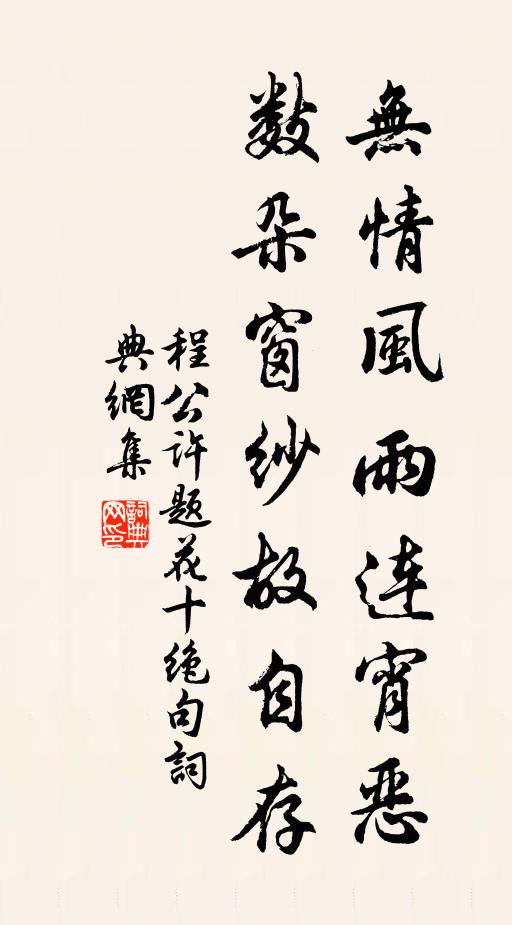 無情風雨連宵惡
數朵窗紗故自存
程公許題花十絶句詞
典網集
詞典網印